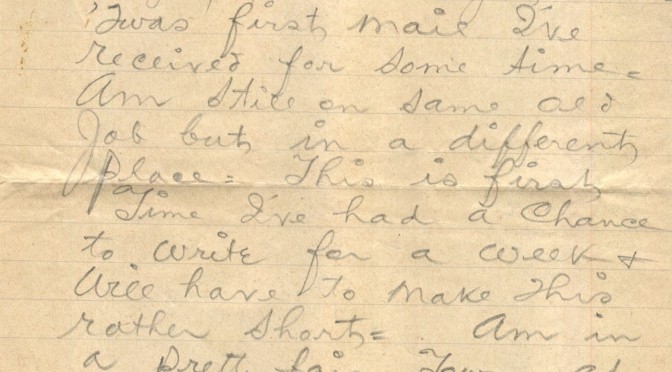 'Twas first mail I've
received for some time =
Am still on same old
Job but in a different
place = This is first
Time I've had a Chance
to write for a week +
Will have to make this
rather short = . Am in
a